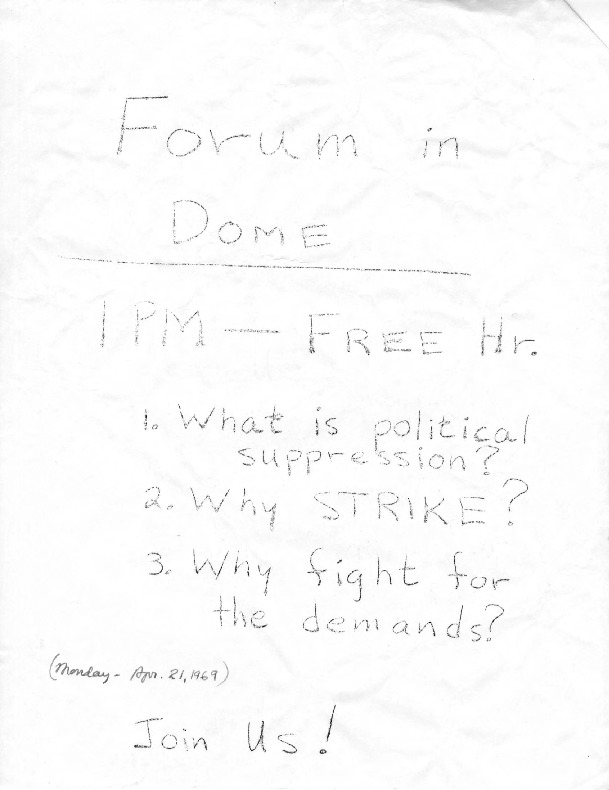 Forum in
DOME
1 PM — FREE Hr.
1. What is political
suppression?
2. Why STRIKE?
3. Why fight for
the demands?
(Monday - Apr. 21, 1969)
Join Us!